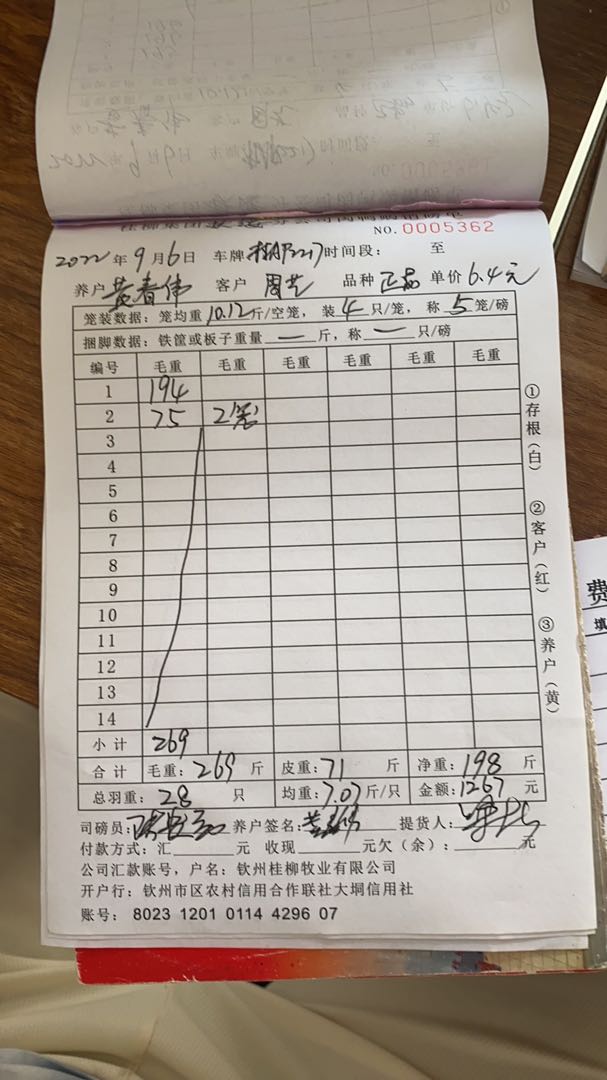 NO. 0005362
2022年9月6日 车牌 时间段： 至
养户 黄春伟 客户 周艺 品种 正品 单价 6.4元
笼装数据：笼均重 10.12 斤/空笼，装 4 只/笼，称 5 笼/磅
捆脚数据：铁筐或板子重量 — 斤，称 — 只/磅
编号 毛重 毛重 毛重 毛重 毛重 毛重
1 194
2 75 2笼
3
4
5
6
7
8
9
10
11
12
13
14
小计 269
合计 毛重：269 斤 皮重：71 斤 净重：198 斤
总羽重：28 只 均重：7.07 斤/只 金额：1267 元
司磅员： 养户签名：黄春伟 提货人：
付款方式：汇 元 收现 元欠（余）： 元
公司汇款账号，户名：钦州桂柳牧业有限公司
开户行：钦州市区农村信用合作联社大垌信用社
账号： 8023 1201 0114 4296 07
①存根（白） ②客户（红） ③养户（黄）
费
填